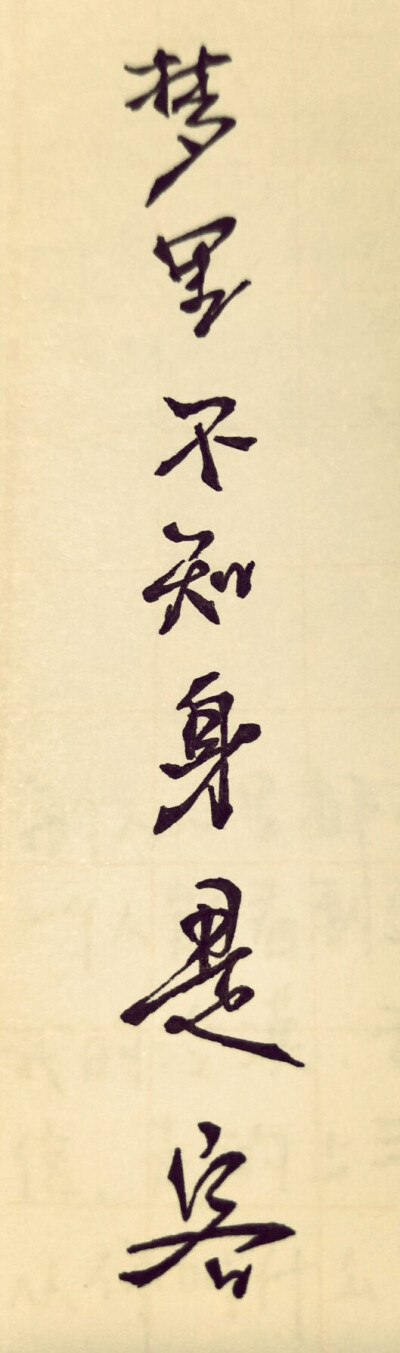 梦里不知身是客